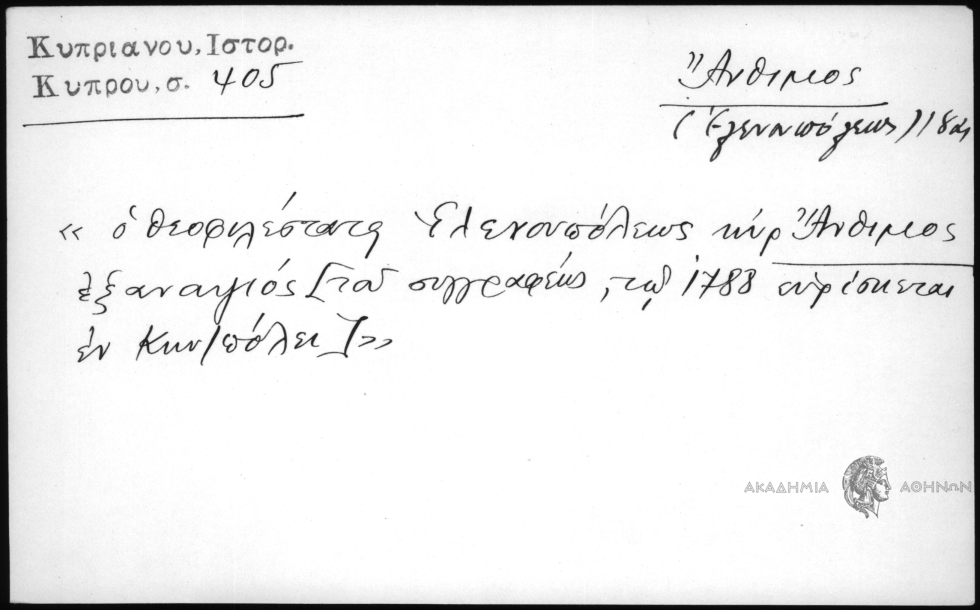 Κυπριανου, Ιστορ.
Κυπρου, σ. 405
Ἄνθιμος
(Ἑλενουπόλεως) 18
« ὁ θεοφιλέστατος Ἑλενουπόλεως κὺρ Ἄνθιμος
ἐξαναψιός [τοῦ συγγραφέως, τῷ 1788 εὑρίσκεται
ἐν Κων/πόλει]»
ΑΚΑΔΗΜΙΑ ΑΘΗΝΩΝ